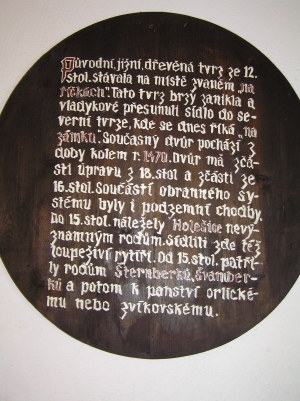 Původní, jižní, dřevěná tvrz ze 12.
stol. stávala na místě zvaném „na
Řekách". Tato tvrz brzy zanikla a
vladykové přesunuli sídlo do se-
verní tvrze, kde se dnes říká „na
zámku". Současný dvůr pochází z
doby kolem r. 1470. Dvůr má zčá-
sti úpravu z 18. stol a zčásti ze
16. stol. Součástí obranného sy-
stému byly i podzemní chodby.
Do 15. stol. náležely Holešice nevý-
znamným rodům. Sídlili zde též
loupeživí rytíři. Od 15. stol. patři-
ly rodům Šternberků, Švamber-
ků a potom k panství orlické-
mu nebo zvíkovskému.